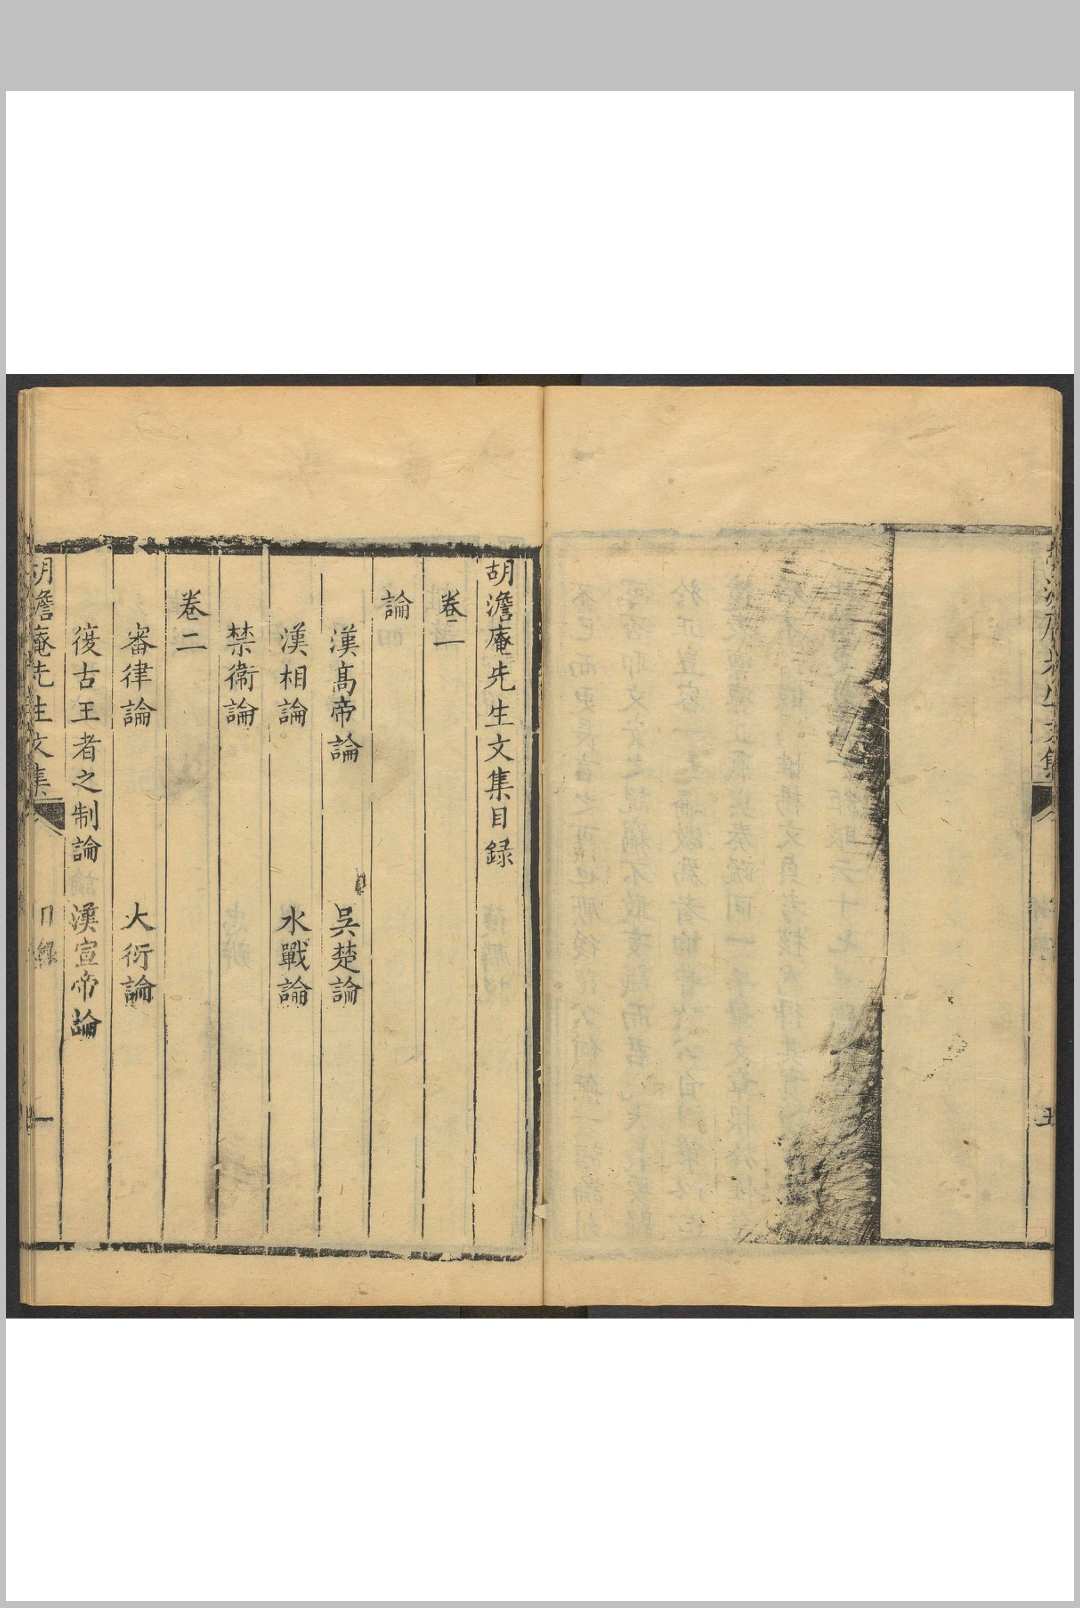 胡澹庵先生文集
五
胡澹庵先生文集目録
卷一
論
漢高帝論
吳楚論
漢相論
水戰論
禁衛論
卷二
審律論
大衍論
復古王者之制論
漢宣帝論
胡澹庵先生文集
目録
一